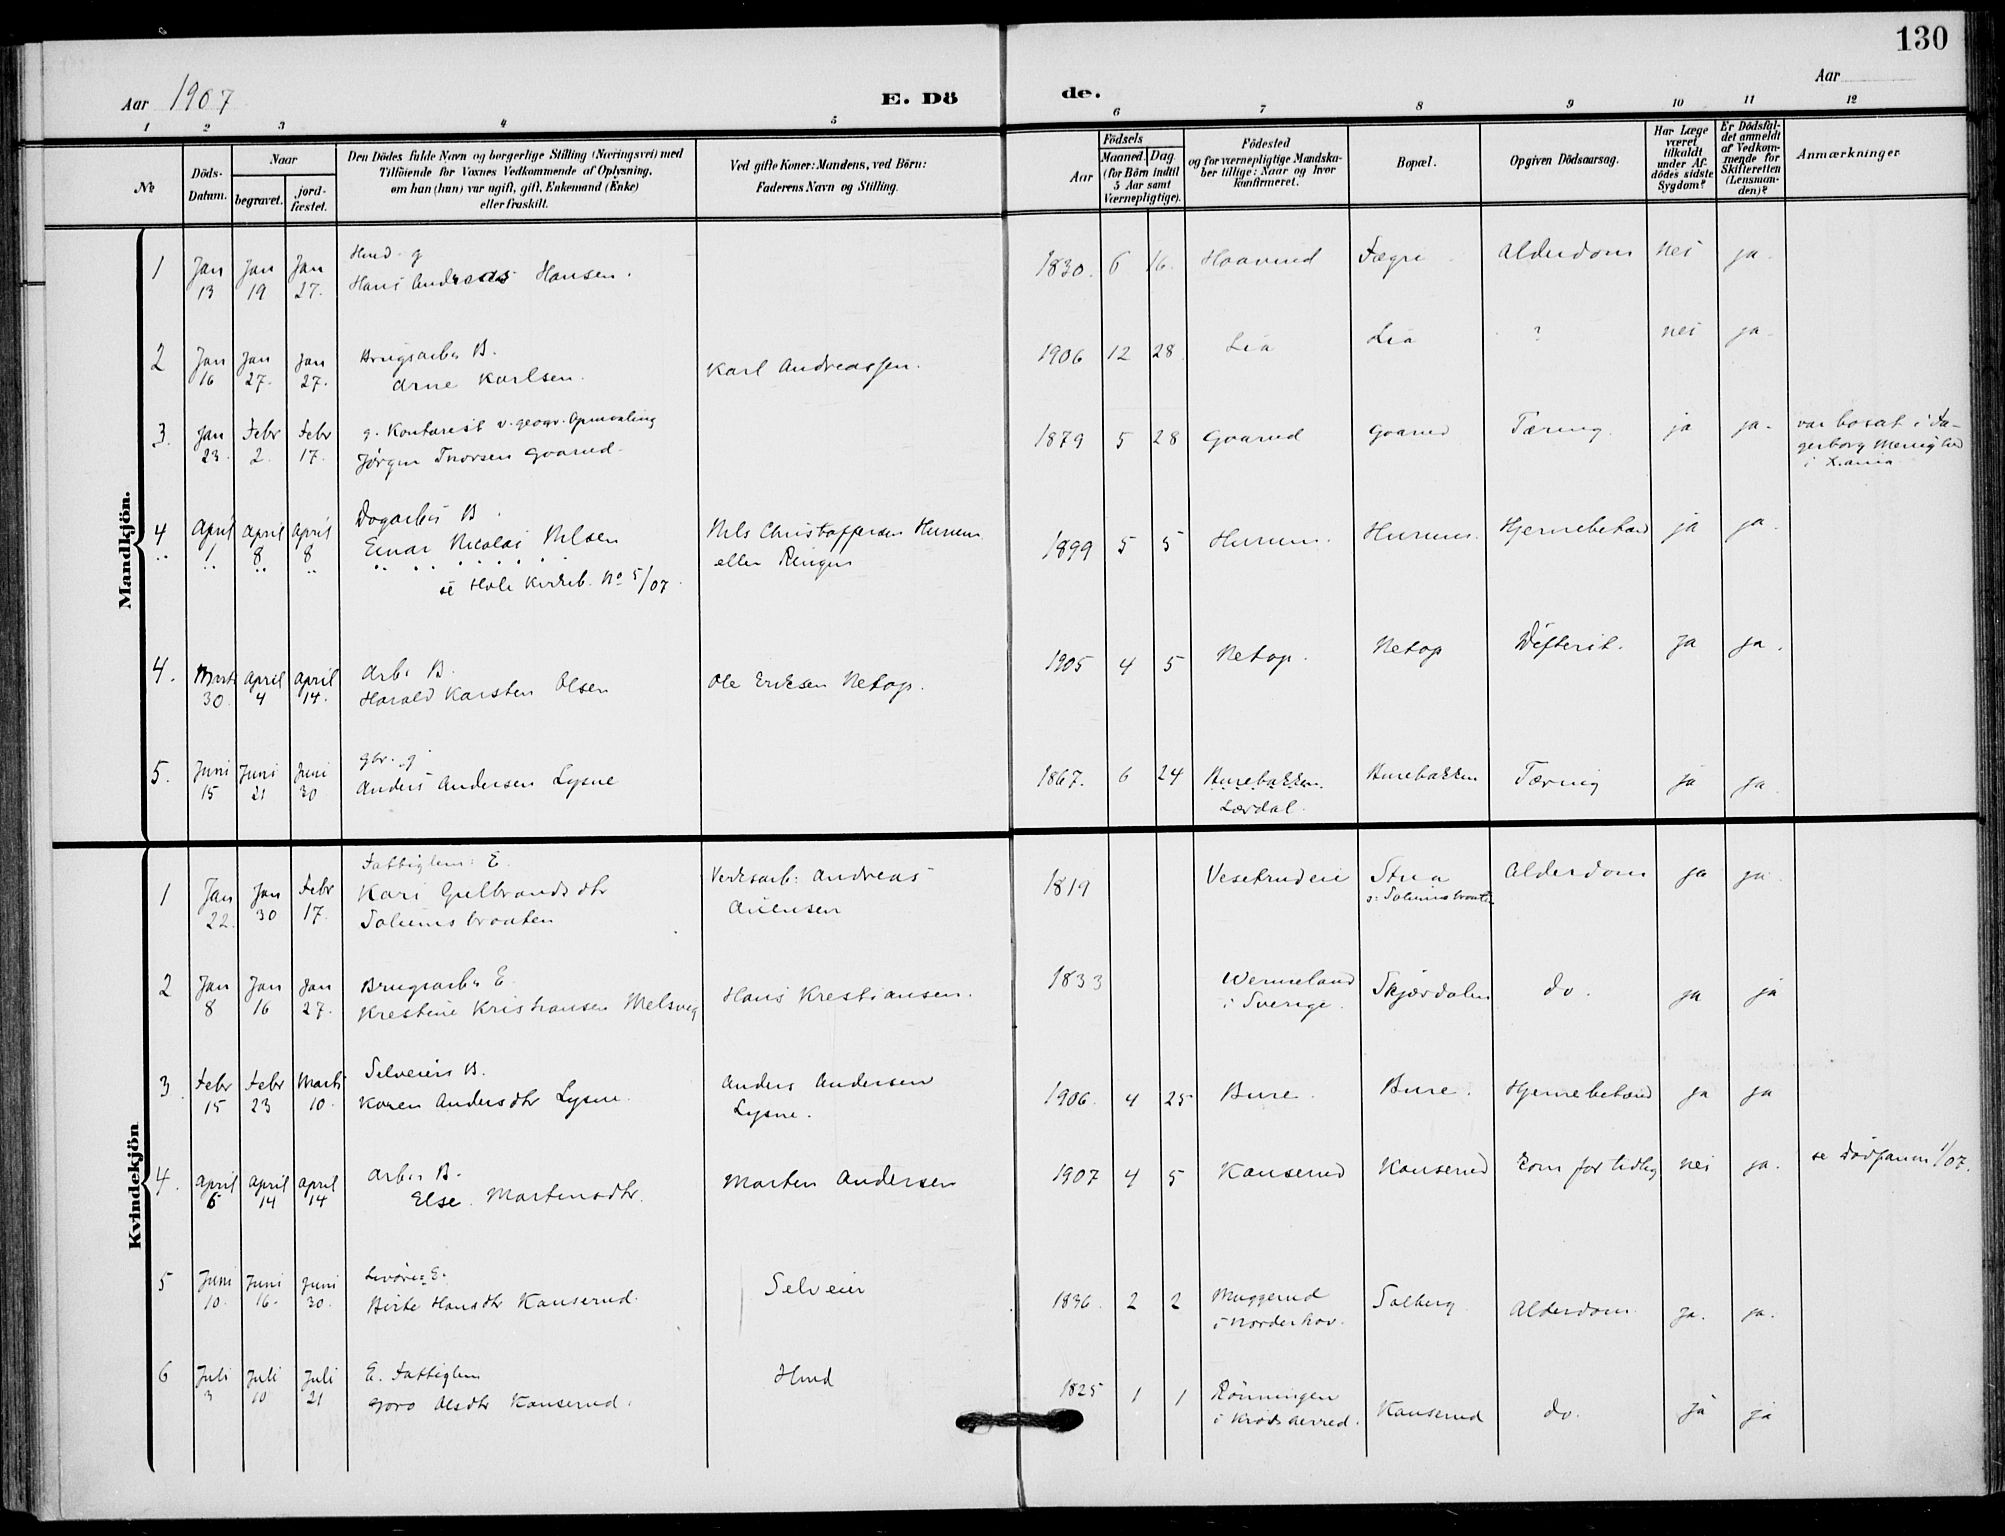 130
Aar 1907
E. Döde.
Aar
1 2 3 4 5 6 7 8 9 10 11 12
№
Döds-Datum.
Naar
begravet.
jordfæstet.
Den Dödes fulde Navn og borgerlige Stilling (Næringsvei) med
Tilföiende for Voxnes Vedkommende af Oplysning,
om han (hun) var ugift, gift, Enkemand (Enke)
eller fraskilt.
Ved gifte Koner: Mandens, ved Börn:
Faderens Navn og Stilling.
Födsels
Aar
Maaned. Dag
(for Börn indtil
5 Aar samt
Værnepligtige).
Födested
og for værnepligtige Mandska-
ber tillige: Naar og hvor
konfirmeret.
Bopæl.
Opgiven Dödsaarsag.
Har Læge
været
tilkaldt
under Af-
dödes sidste
Sygdom?
Er Dödsfal-
det anmeldt
af Vedkom-
mende for
Skifteretten
(Lensman-
den)?
Anmærkninger
Mandkjön.
1 Jan 13 Jan 19 Jan 27.
Hmd. g
Hans Andreas Hansen.
1830. 6 16. Haavrud Fægri Alderdom nei ja.
2 Jan 16 Jan 27. Jan 27.
Brugsarbr B.
Arne Karlsen.
Karl Andreassen.
1906 12 28 Lia Lia ? nei ja.
3. Jan 23. Febr 2. Febr 17.
g. Kontorist v. geogr. Opmaaling
Jørgen Thorsen Gaarud.
1879 5 28 Gaarud Gaarud Tæring. ja ja.
var bosat i Fa-
gerborg Menighed
i Kr.ania
4 April 1 April 8 April 8
Dagarbr B.
Einar Nicolai Nilsen
se Hole Kirkeb. No 5/07.
Nils Christoffersen Hurum
eller Ringen
1899 5 5 Hurum. Hurum. Hjernebetænd ja ja.
4. Marts 30. April 4 April 14.
Arbr B.
Harald Karsten Olsen
Ole Eriksen Netop.
1905 4 5 Netop. Netop Difterit. ja ja.
5. Juni 15 Juni 21 Juni 30
gbr. g
Anders Andersen Lysne
1867. 6 24 Burebakken Burebakken Tæring ja ja
Lærdal.
Kvindekjön
1 Jan 22. Jan 30 Febr 17.
Fattiglem: E.
Kari Gulbrandsdtr
Solumsbraaten
Verksarb: Andreas
1819 Vesetrudeie Stua
s: Solumsbraaten
Alderdom ja ja.
2 Jan 8 Jan 16 Jan 27.
Brugsarbr E.
Kristine Kristiansen Melsveg
Hans Kristiansen.
1833 Wermeland
i Sverige.
Skjærdalen do. ja ja
3 Febr 15 Febr 23 Marts 10.
Selveiers B.
Karen Andersdtr Lysne.
Anders Andersen
Lysne.
1906. 4 25 Bure. Bure. Hjernebetænd ja ja
4. April 5 April 14 April 14
Arbr B.
Else Martinsdtr.
Martin Andersen
1907 4 5 Kanserud Kanserud Kom for tidlig nei ja. se Dødfødn 1/07.
5 Juni 10. Juni 16. Juni 30.
Birte Hansdtr Kanserud.
Selveier
1836. 2 2 Muggerud
i Norderhov.
Solberg Alderdom. ja. ja.
6 Juli 3 Juli 10 Juli 21
E. Fattiglem
Goro Olsdtr Kanserud.
Hmd
1825 1 1 Rönningen
i Krødsherred.
Kanserud do. ja ja